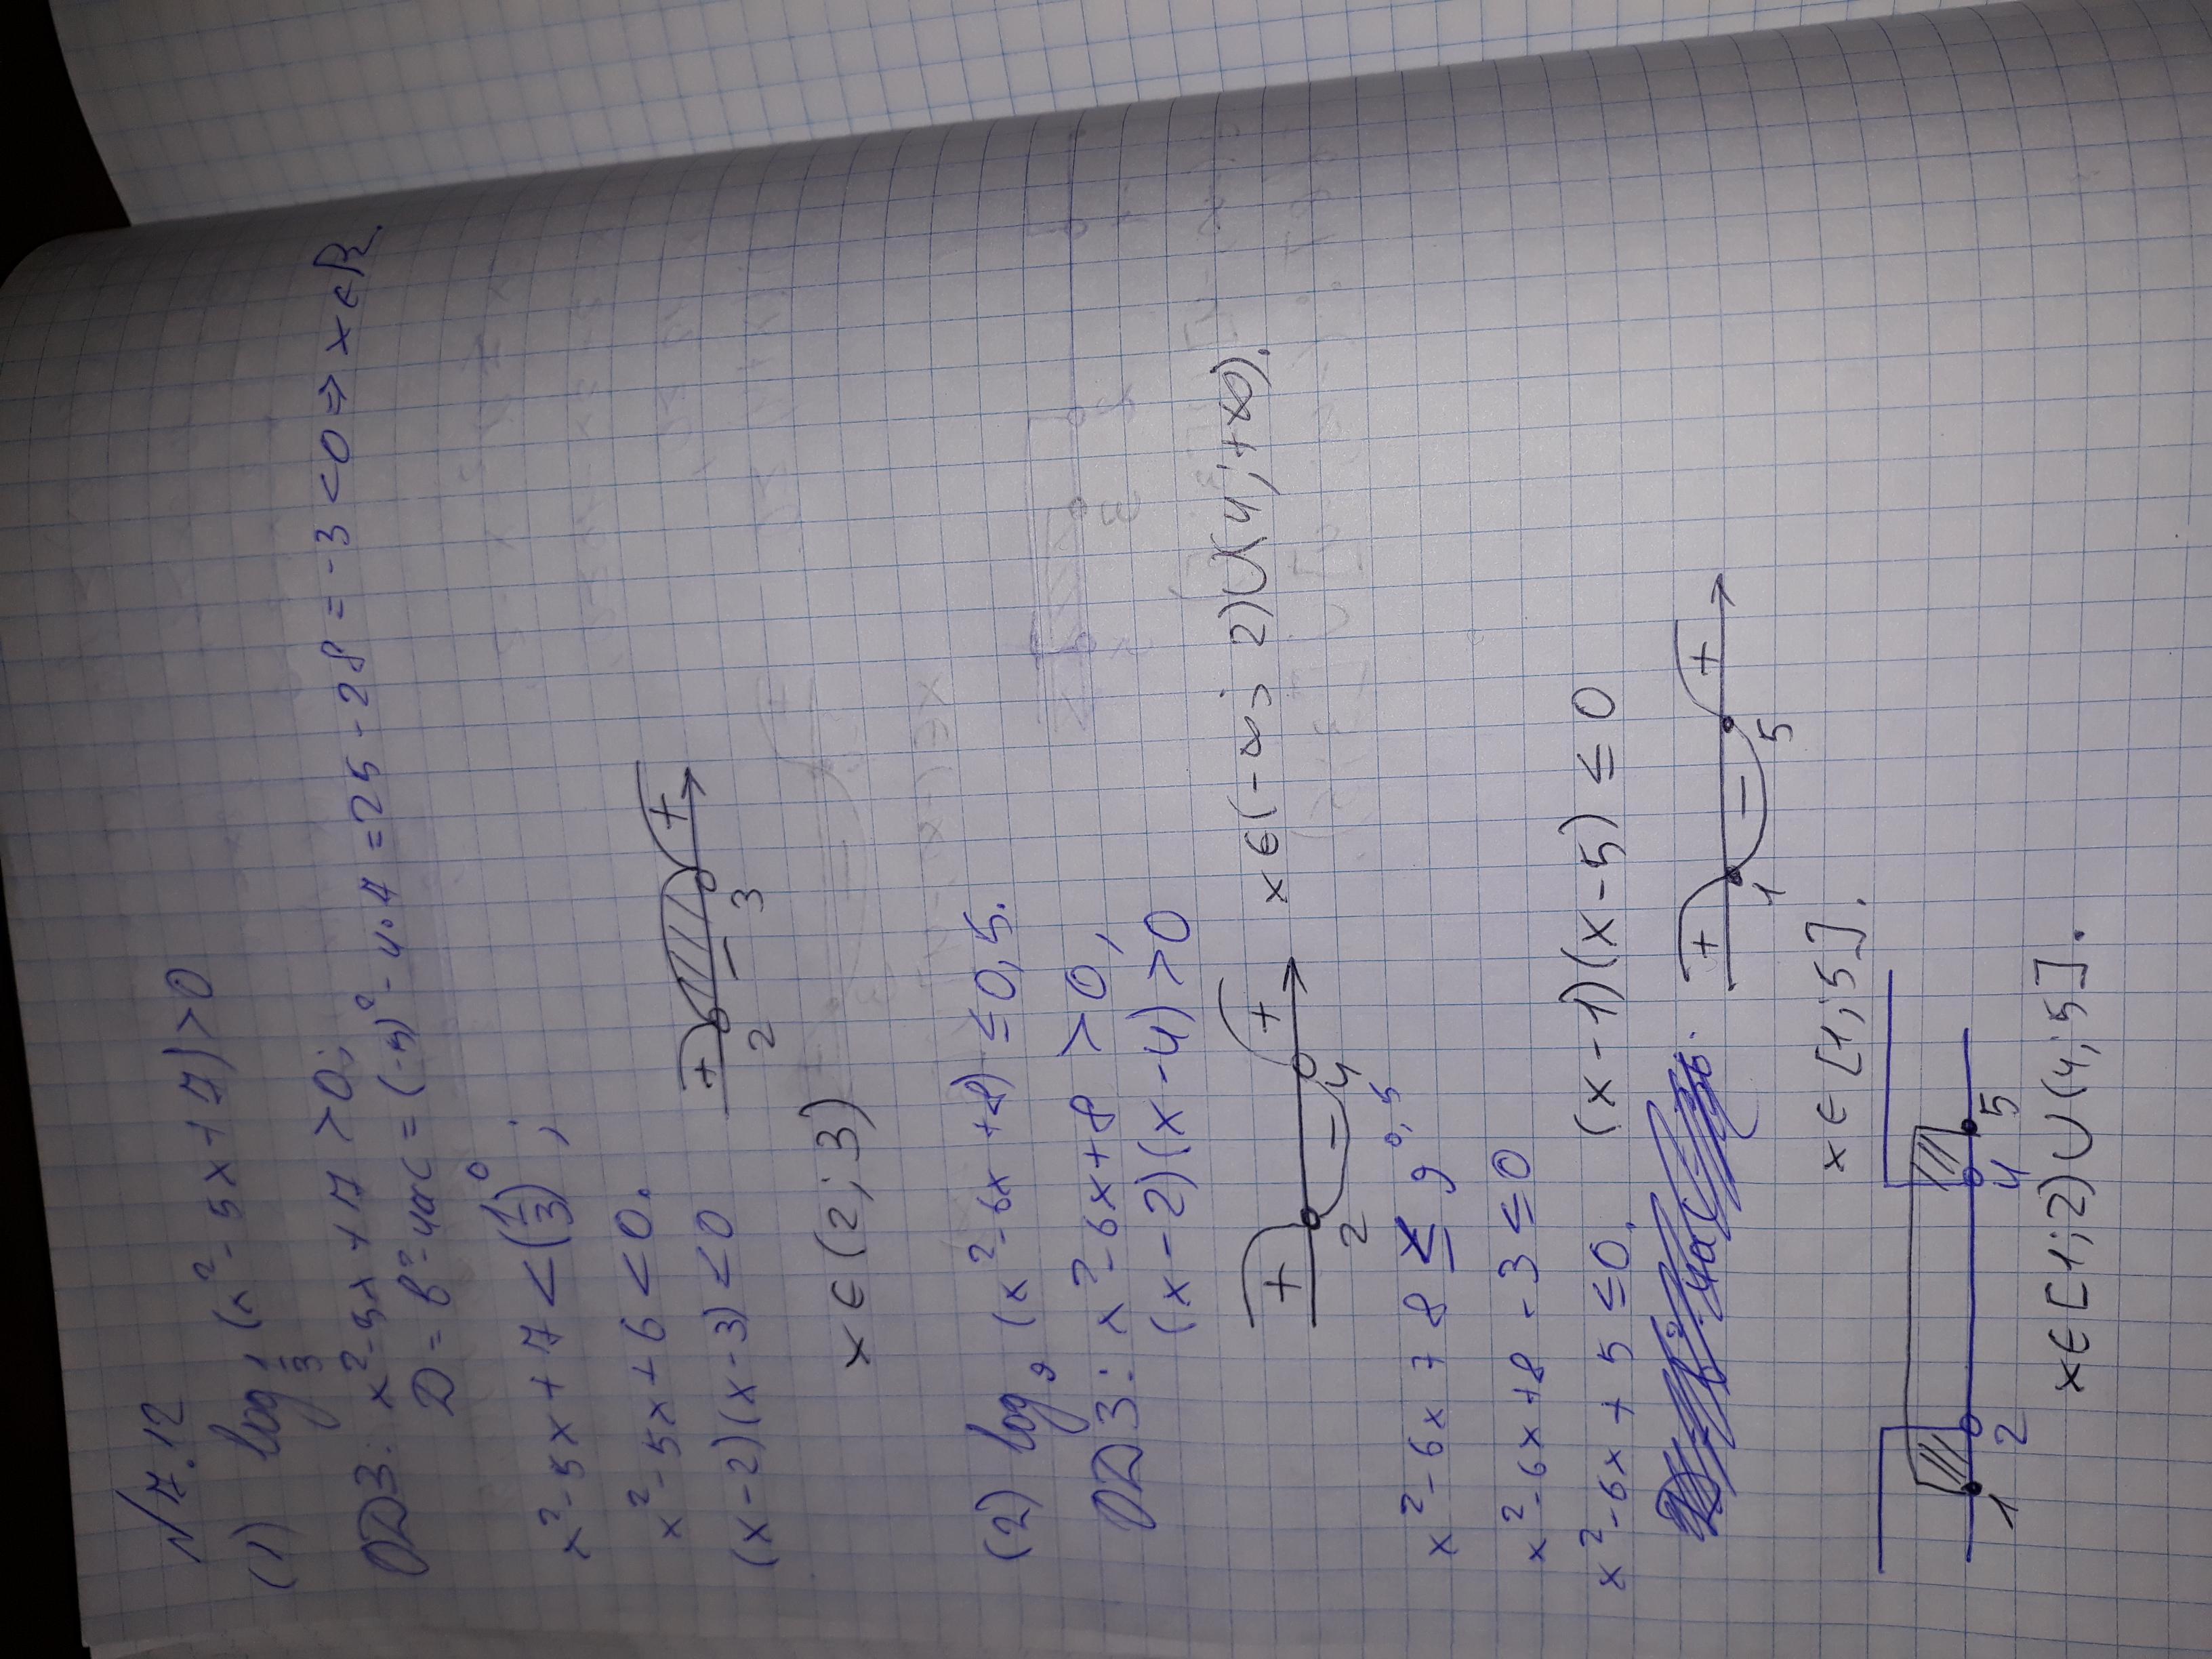 №7.12
(1) log 1/3 (x² - 5x + 7) > 0
ОДЗ: x² - 5x + 7 > 0;
D = b² - 4ac = (-5)² - 4·7 = 25 - 28 = -3 < 0 => x ∈ R.
x² - 5x + 7 < (1/3)⁰;
x² - 5x + 6 < 0.
(x - 2)(x - 3) < 0
+ - +
2 3
x ∈ (2; 3)
(2) log₉ (x² - 6x + 8) ≤ 0,5.
ОДЗ: x² - 6x + 8 > 0,
(x - 2)(x - 4) > 0
+ - +
2 4
x ∈ (-∞; 2) ∪ (4; +∞).
x² - 6x + 8 ≤ 9^0,5
x² - 6x + 8 - 3 ≤ 0
x² - 6x + 5 ≤ 0. (x - 1)(x - 5) ≤ 0
+ - +
1 5
x ∈ [1; 5].
1 2 4 5
x ∈ [1; 2) ∪ (4; 5].